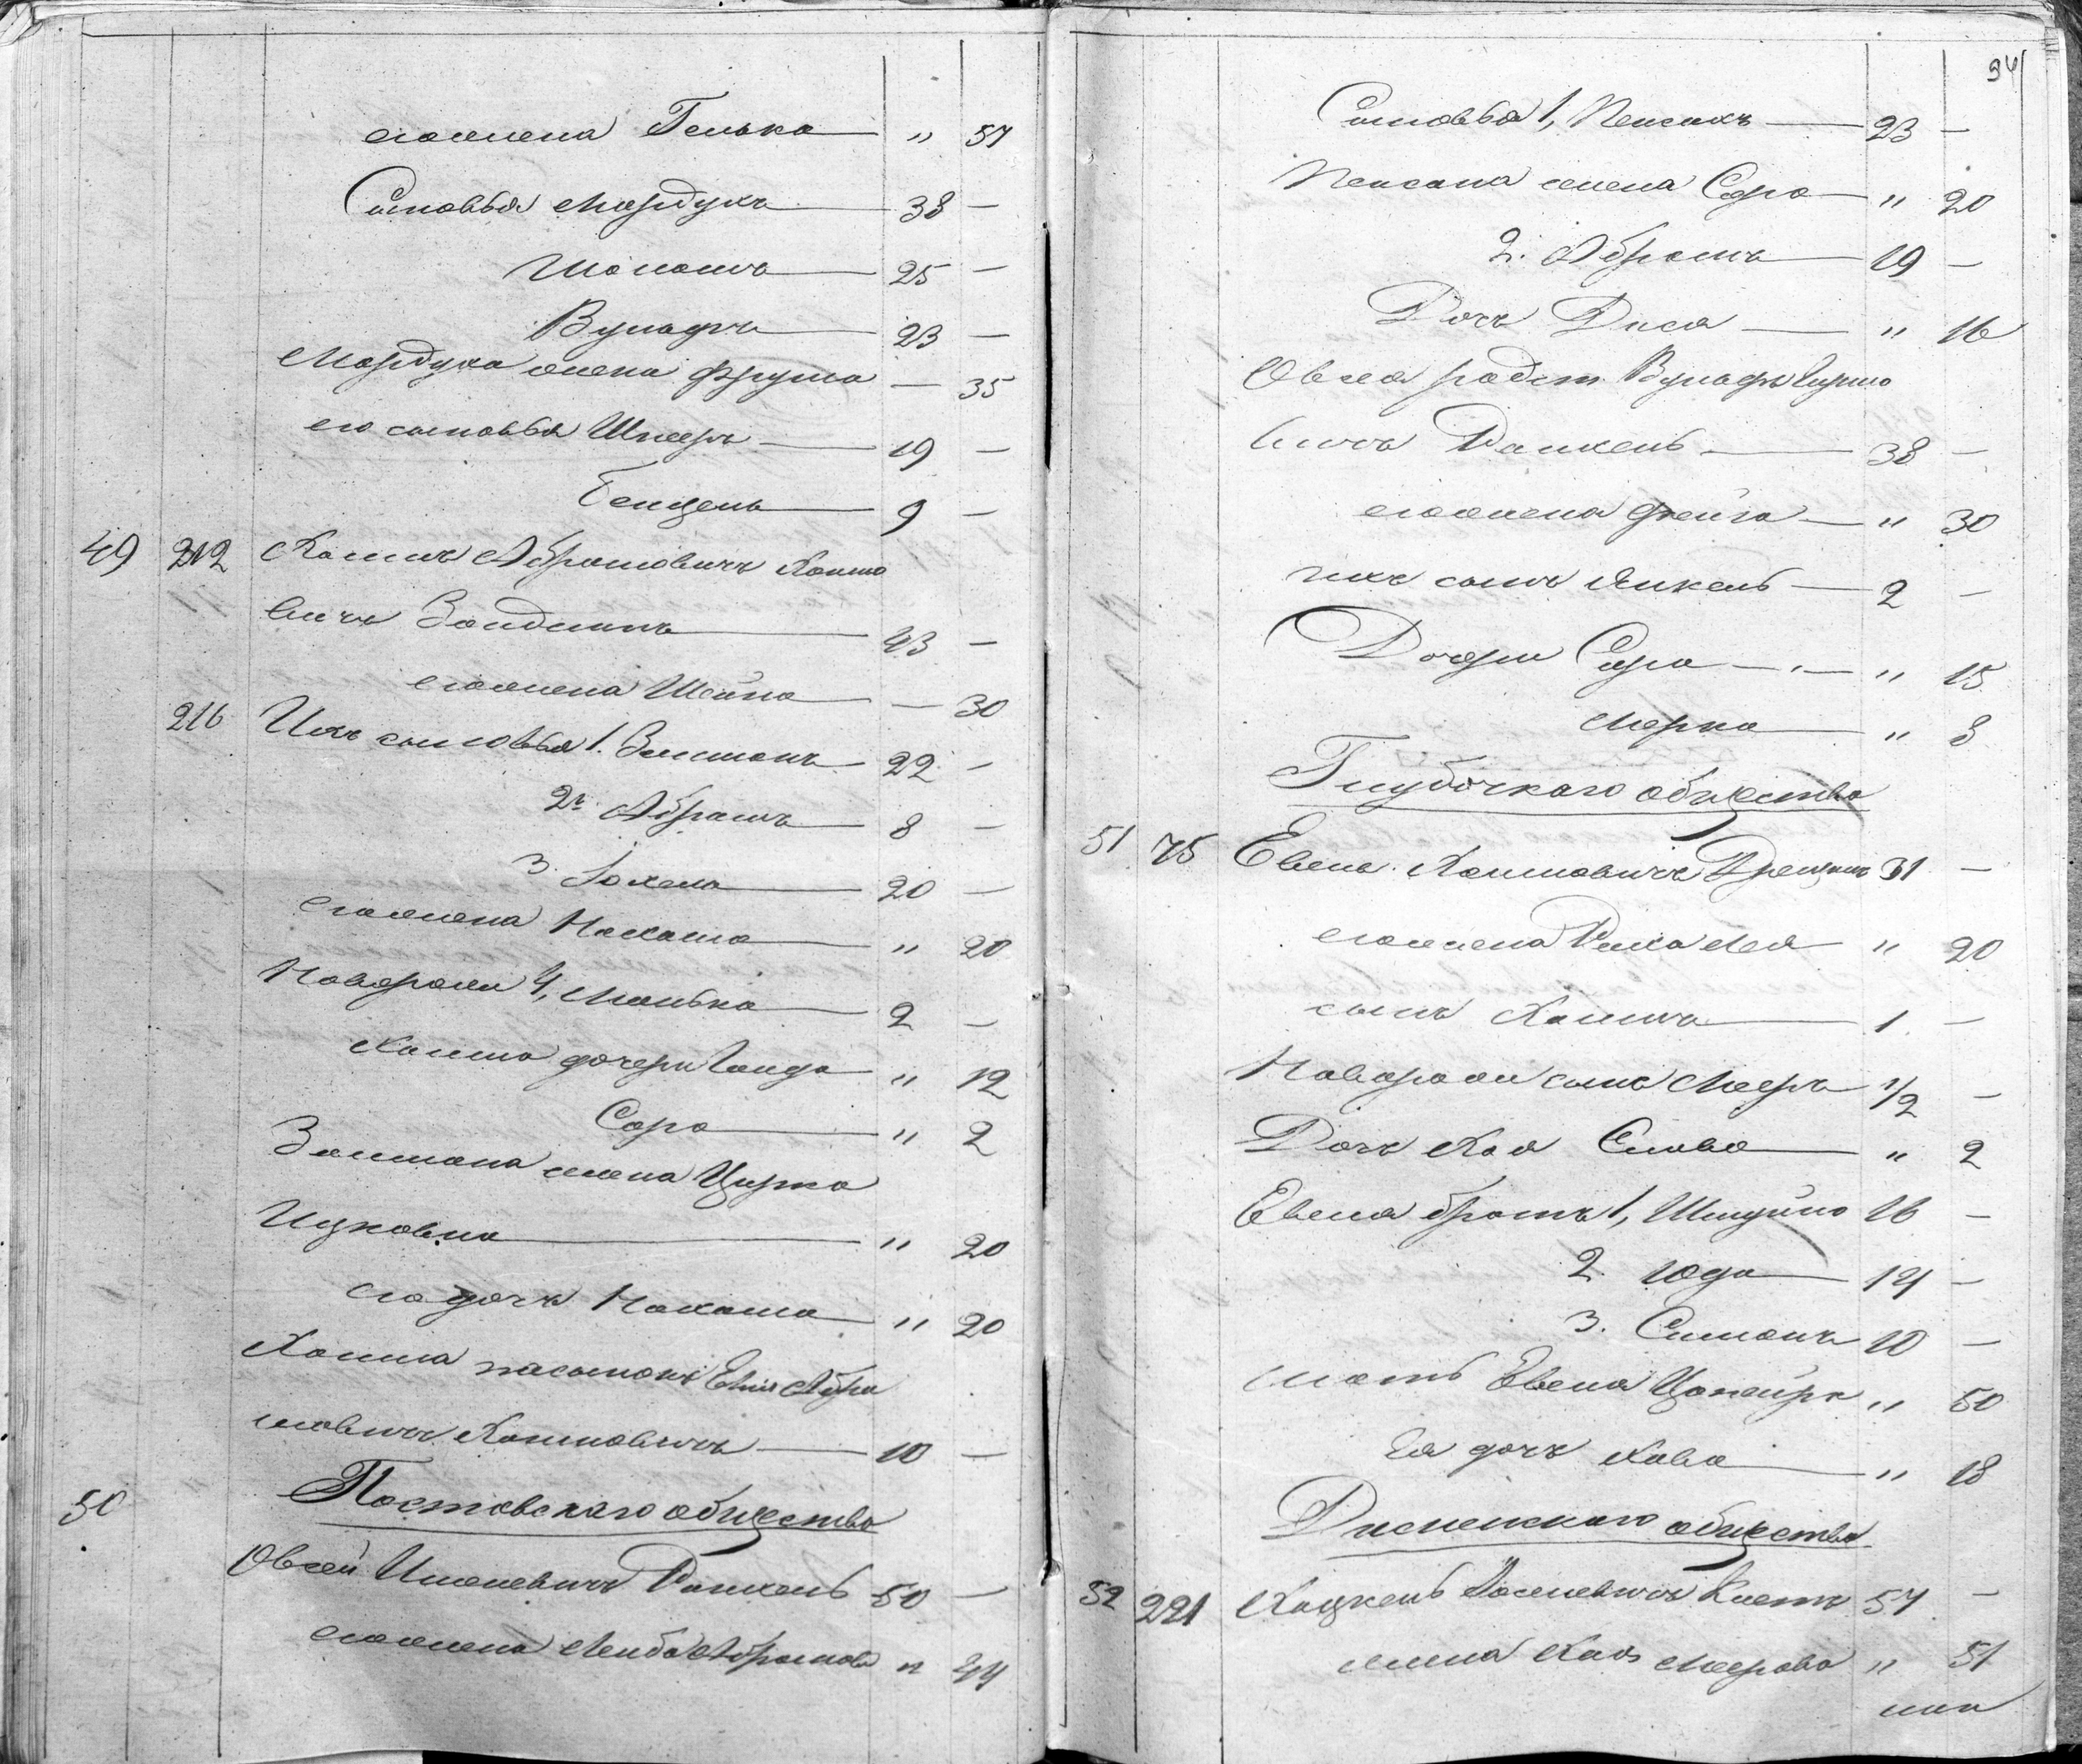 его жена Гелька — " 57
Сыновья Мордухъ — 38 —
Шоломъ — 25 —
Вульфъ — 23 —
Мордуха жена Фрума — — 35
его сыновья Шмеръ — 19 —
Бенцель — 9 —
49 212 Хаимъ Абрамовичъ Хаимо
вичъ Зайдманъ — 43 —
его жена Шейна — — 30
216 Ихъ сыновья 1. Залманъ — 22 —
2й Абрамъ — 8 —
3. Іохель — 20 —
его жена Нахама — " 20
Новорожд 4, Монька — 2 —
Хаима дочери Гинда — " 12
Сора — " 2
Залмана жена Цирка
Ицковна — " 20
его дочь Нахама — " 20
Хаима пасынокъ Абра
мовичъ Хаимовичъ — 10 —
50 Поставскаго общества
Овсей Ицелевичъ Ранкель 50 —
его жена Лейба Абрамова " 44
94
Сыновья 1, Пейсахъ — 23 —
Пейсаха жена Сора — " 20
2. Абрамъ — 19 —
Дочь Дися — " 16
Овсея родст. Вульфъ Гиршо
вичъ Ранкель — 38 —
его жена Фейга — " 30
ихъ сынъ Янкель — 2 —
Дочери Сора — " 15
Мерка — " 8
Глубочкаго общества
51 75 Евель Хаимовичъ 31 —
его жена Рися Лея " 20
сынъ Хаимъ — 1 —
Новорожд сынъ Мееръ 1/2 —
Дочь Хая Слава — " 2
Евеля братья 1, Шлуймо 16 —
2. Юда — 14 —
3. Симонъ 10 —
мать Евеля Ципейра " 50
Ея дочь Хава — " 18
Дисненскаго общества
52 221 Хацкель 57 —
жена Хая Меерова " 51